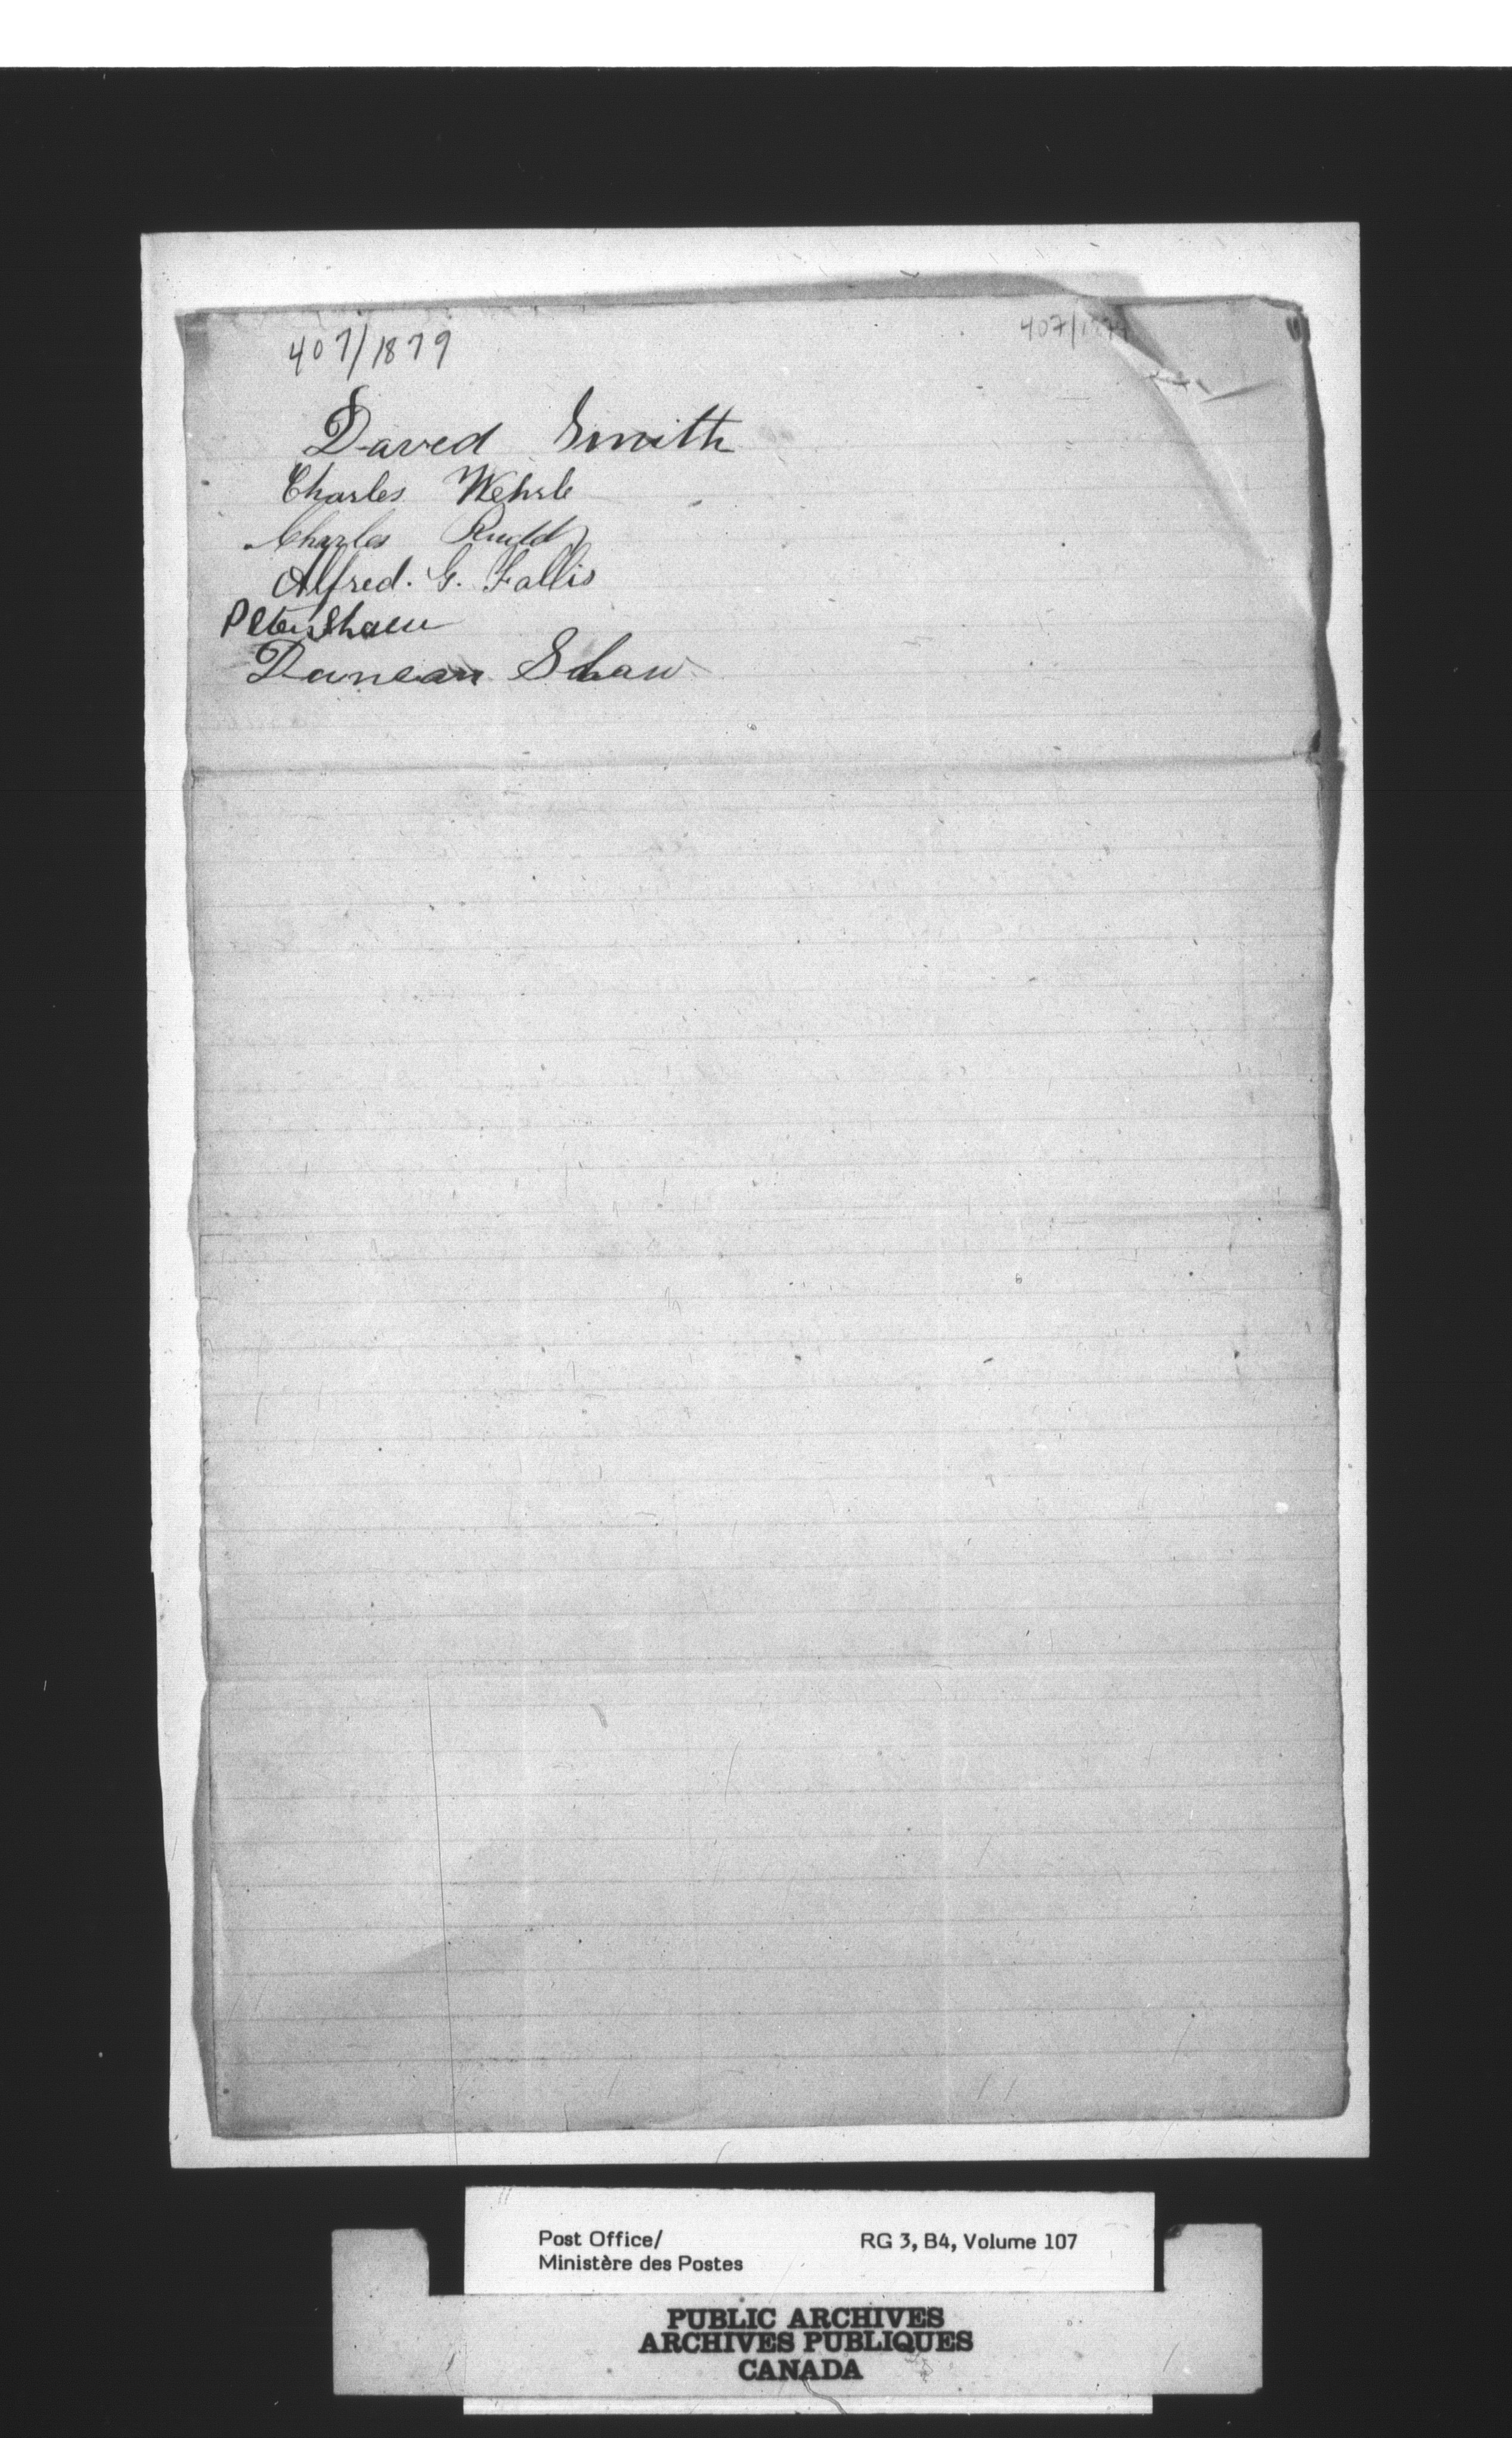 407/1879
407/1879
David Smith
Charles Wehrle
Charles Rudd
Alfred. G. Fallis
Peter Shaw
Duncan Shaw
Post Office/
Ministère des Postes
RG 3, B4, Volume 107
PUBLIC ARCHIVES
ARCHIVES PUBLIQUES
CANADA